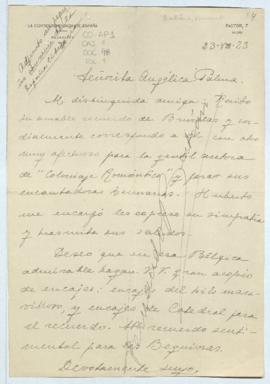 LA CONSTRUCTORA DE ESPAÑA
PASTOR, 7
23-VIII-23
CO-AP1
CAJ 1
DOC 98
FOL. 1
Señorita Angélica Palma.
Mi distinguida amiga: Recibo
su amable recuerdo de Bruselas y cor-
dialmente correspondo a él con otro
muy afectuoso para la gentil autora
de "Coloniaje Romántico" y para sus
encantadoras hermanas. Huberto
me encargó les exprese su simpatía
y trasmita sus saludos.
Deseo que en esa Bélgica
admirable hagan V.V. gran acopio
de encajes: encajes del hilo mara-
villoso, y encajes de Catedral para
el recuerdo. Mi recuerdo senti-
mental para las Beguinas.
Devotamente suyo,